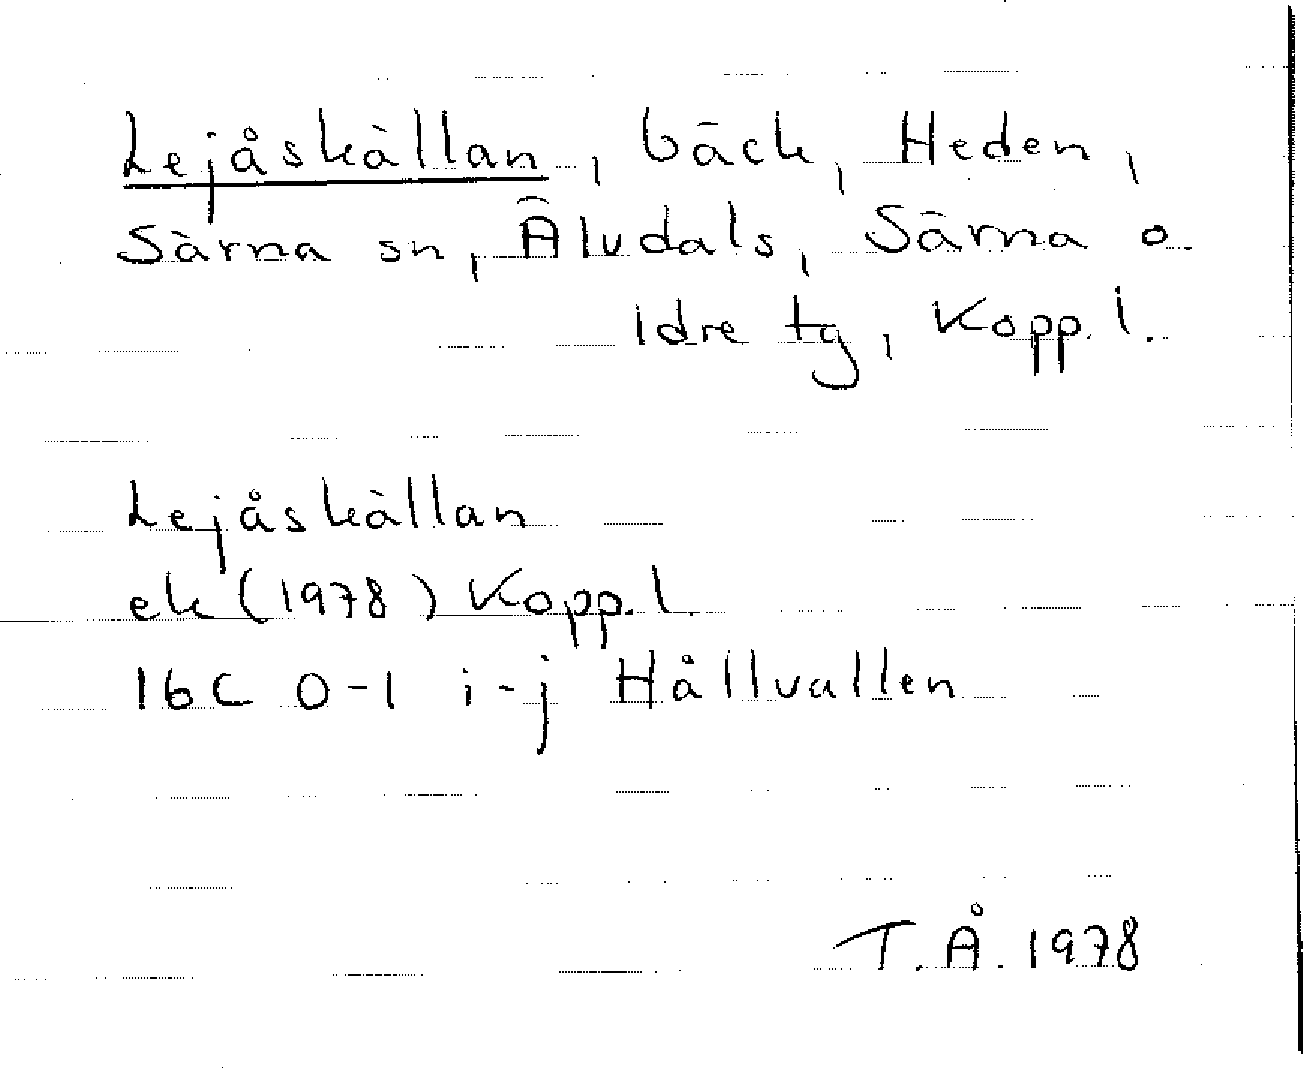 Lejåskällan, bäck, Heden,
Särna sn, Älvdals, Särna o.
Idre tg, Kopp. l.
Lejåskällan
ek (1978) Kopp. l.
16C 0-1 i-j Hållvallen
T.Å. 1978